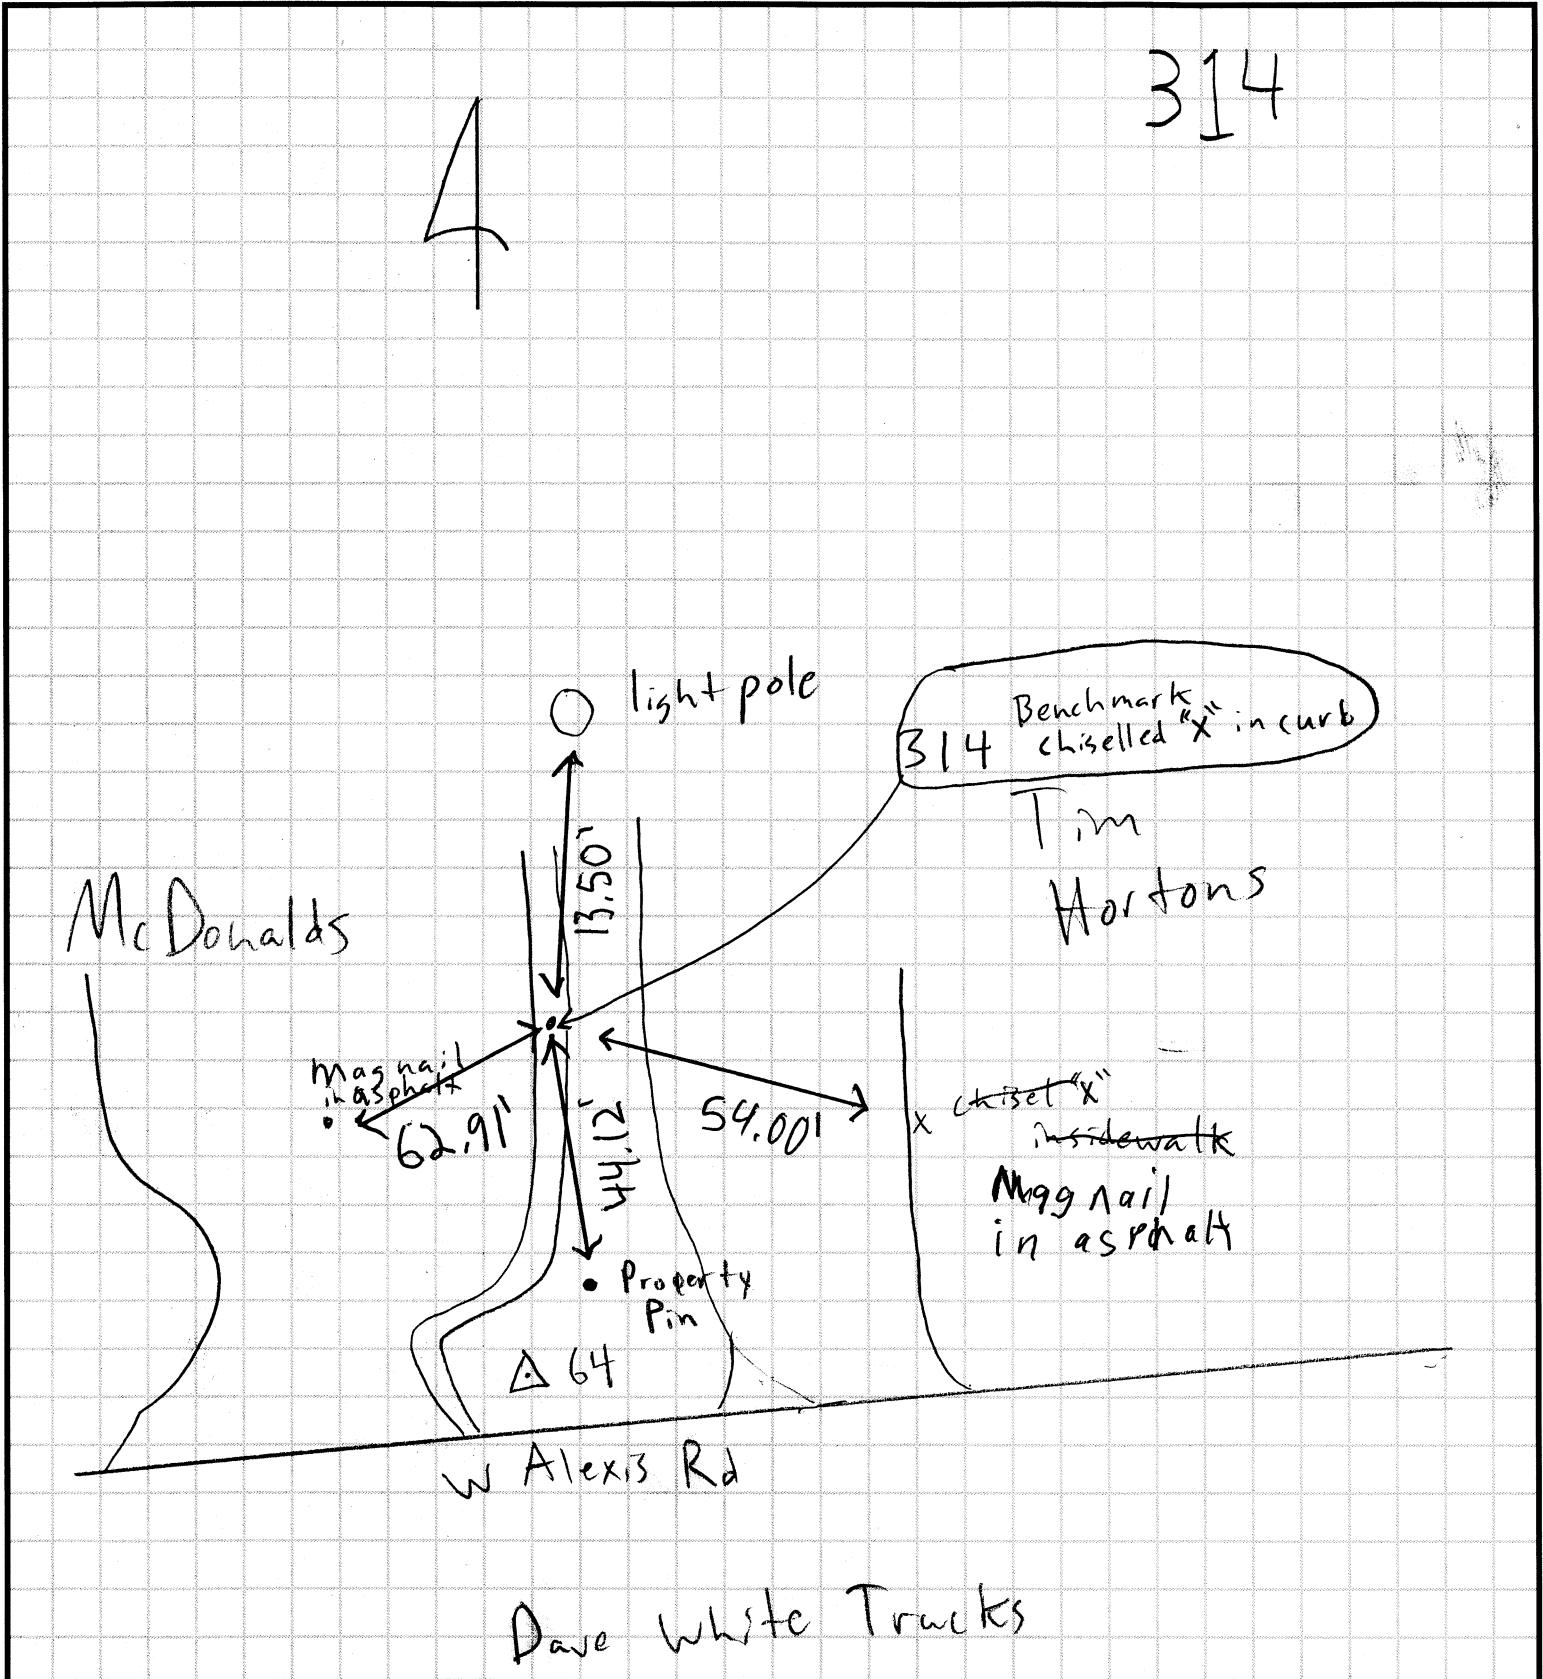 314
4
light pole
314 Benchmark
chiselled "x" in curb
Tim
Hortons
13.50'
McDonalds
Mag nail
in asphalt
62.91'
44.12'
54.00'
x chisel "x"
in sidewalk
Mag nail
in asphalt
Property
Pin
64
W Alexis Rd
Dave White Trucks